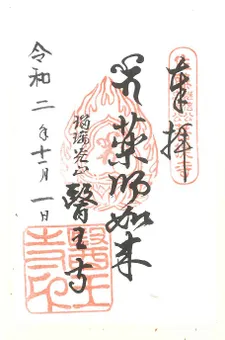 奉拝
薬師如来
瑠璃光山
醫王寺
令和二年十二月一日
醫王寺印